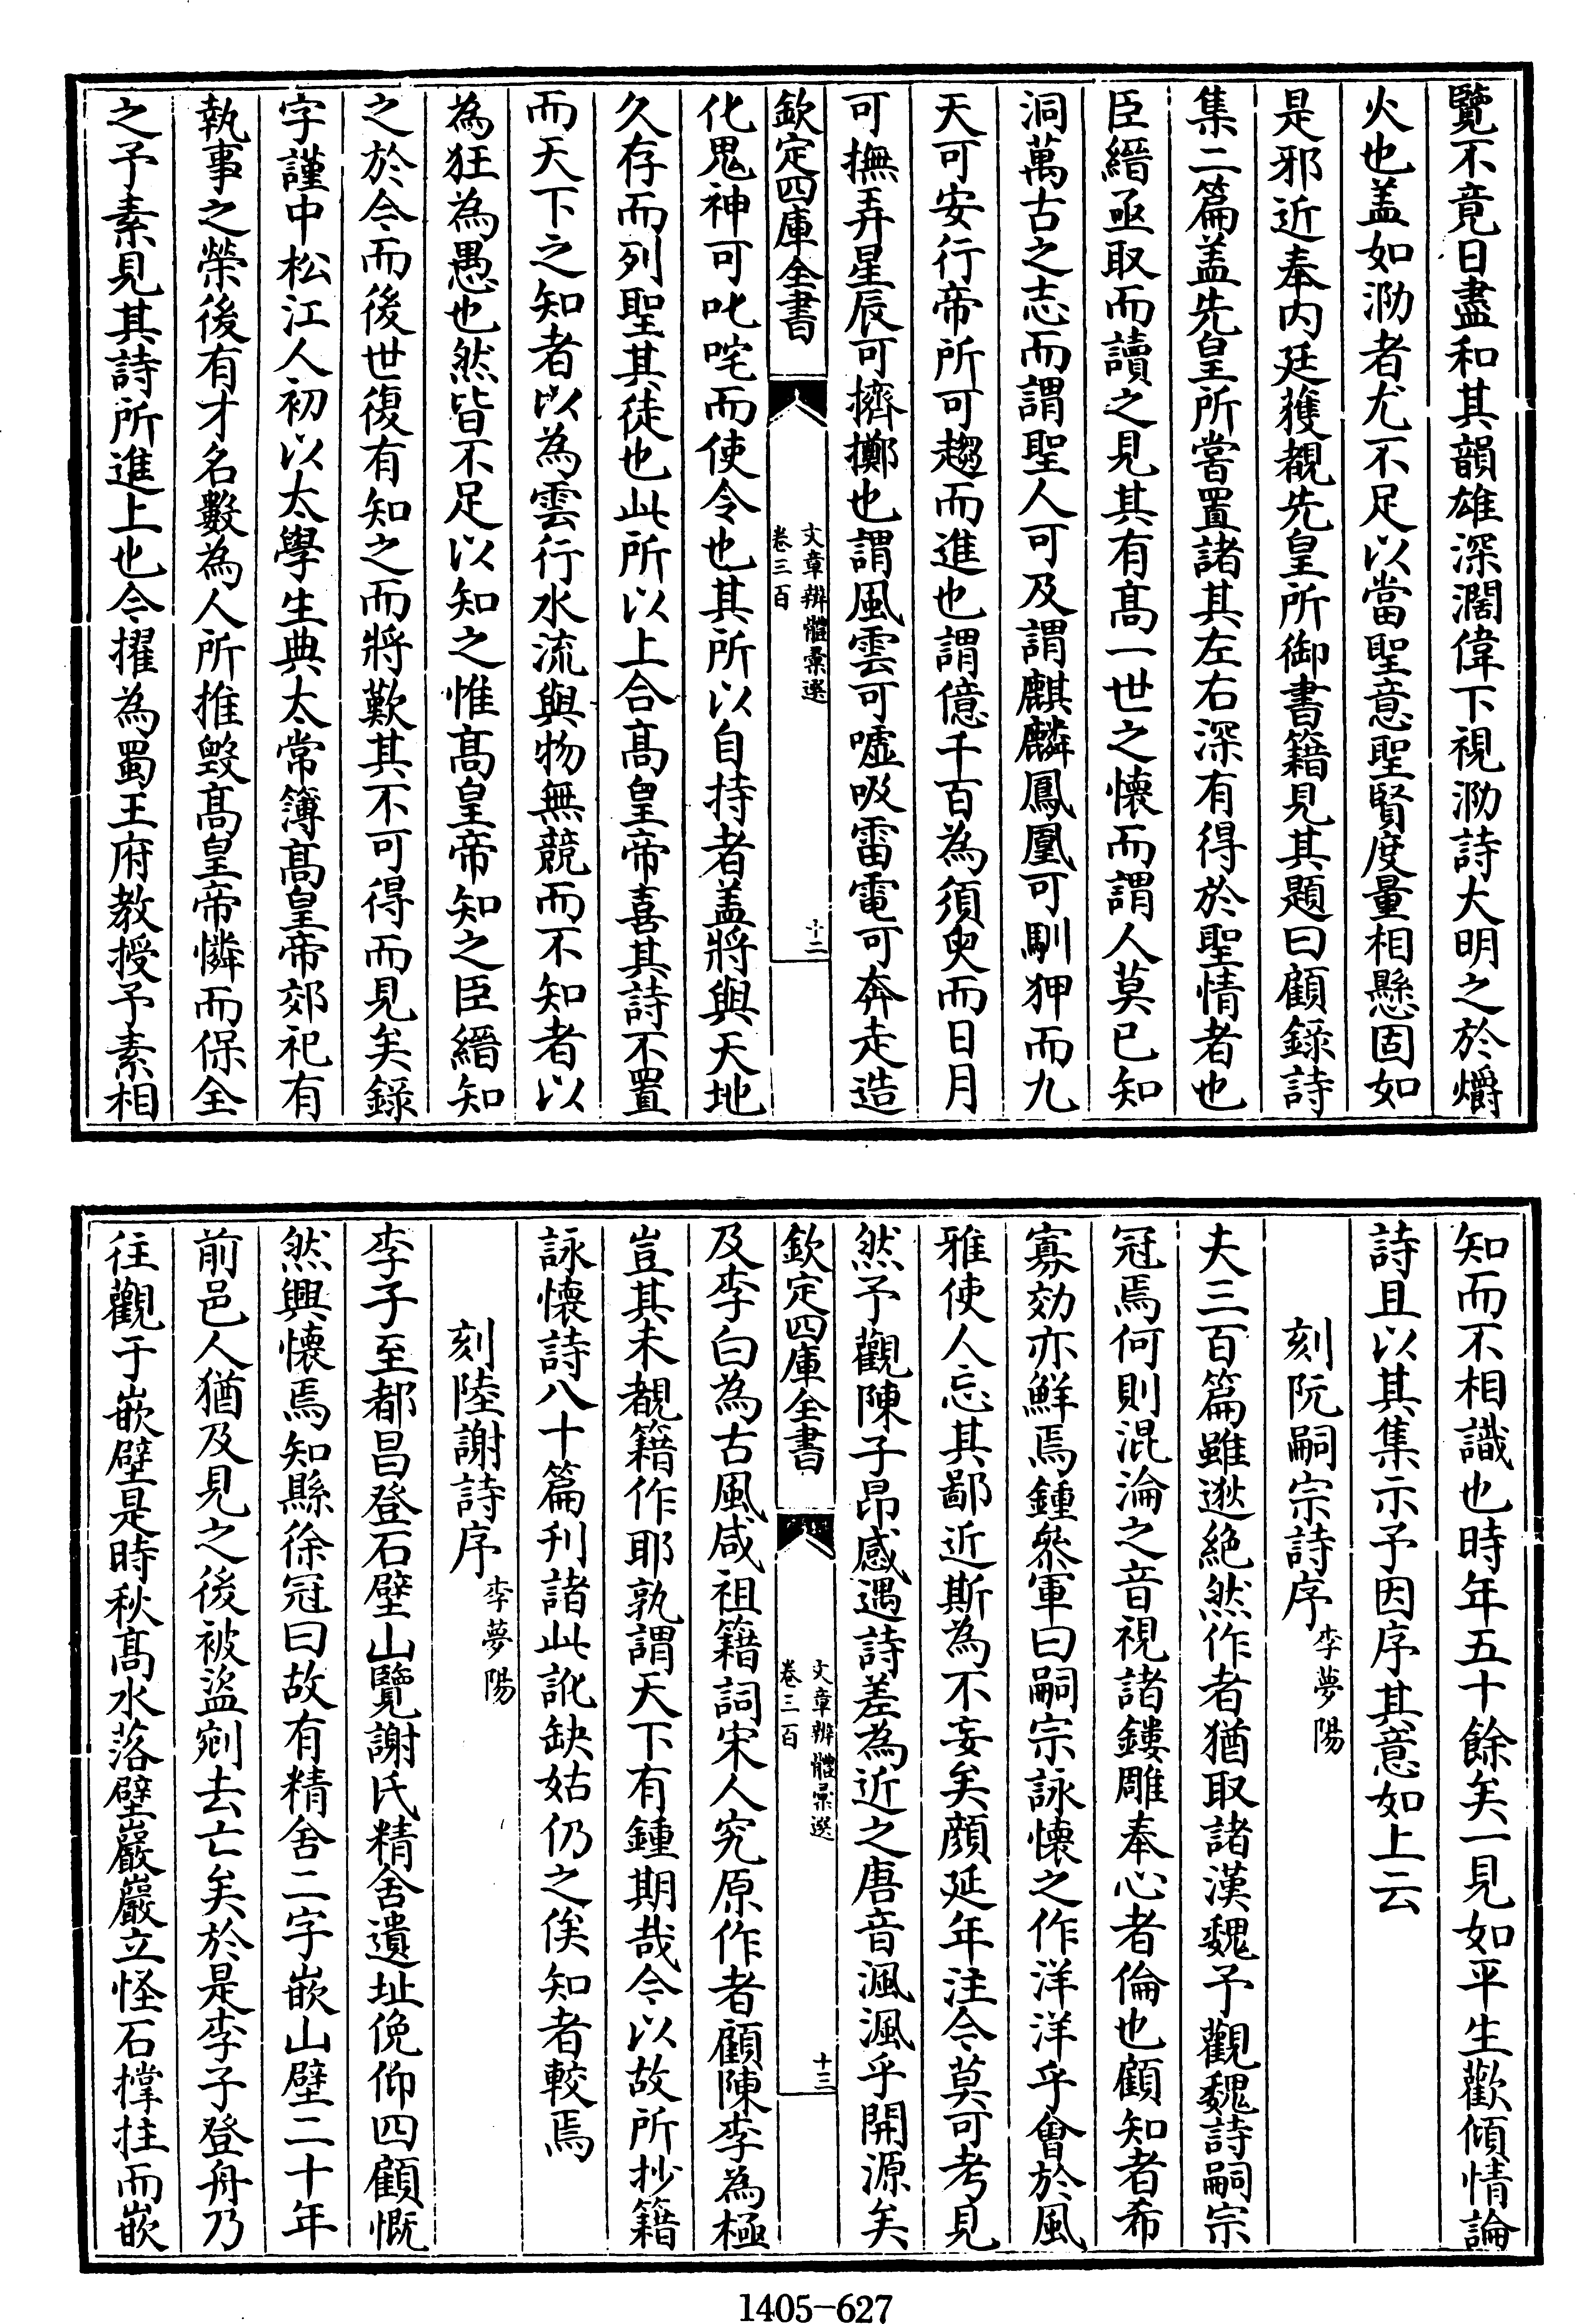 覽不竟日盡和其韻雄深濶偉下視泐詩大明之於爝
火也盖如泐者尤不足以當聖意聖賢度量相懸固如
是邪近奉内廷獲覩先皇所御書籍見其題曰顧録詩
集二篇盖先皇所嘗置諸其左右深有得於聖情者也
臣縉亟取而讀之見其有髙一世之懷而謂人莫已知
洞萬古之志而謂聖人可及謂麒麟鳳凰可馴狎而九
天可安行帝所可趨而進也謂億千百為須臾而日月
可撫弄星辰可擠擲也謂風雲可噓吸雷電可奔走造
欽定四庫全書
文章辨體彚選
卷三百
十二
化鬼神可叱咤而使令也其所以自持者盖將與天地
久存而列聖其徒也此所以上合髙皇帝喜其詩不置
而天下之知者以為雲行水流與物無競而不知者以
為狂為愚也然皆不足以知之惟髙皇帝知之臣縉知
之於今而後世復有知之而將歎其不可得而見矣録
字謹中松江人初以太學生典太常簿髙皇帝郊祀有
執事之榮後有才名數為人所推毀髙皇帝憐而保全
之予素見其詩所進上也今擢為蜀王府教授予素相
知而不相識也時年五十餘矣一見如平生歡傾情論
詩且以其集示予因序其意如上云
刻阮嗣宗詩序
李夢陽
夫三百篇雖逖絶然作者猶取諸漢魏予觀魏詩嗣宗
冠焉何則混淪之音視諸鏤雕奉心者倫也顧知者希
寡効亦鮮焉鍾叅軍曰嗣宗詠懐之作洋洋乎會於風
雅使人忘其鄙近斯為不妄矣顔延年注今莫可考見
然予觀陳子昂感遇詩差為近之唐音渢渢乎開源矣
欽定四庫全書
文章辨體彚選
卷三百
十三
及李白為古風咸祖籍詞宋人究原作者顧陳李為極
豈其未覩籍作耶孰謂天下有鍾期哉今以故所抄籍
詠懐詩八十篇刋諸此訛缺姑仍之俟知者較焉
刻陸謝詩序
李夢陽
李子至都昌登石壁山覽謝氏精舍遺址俛仰四顧慨
然興懐焉知縣徐冠曰故有精舍二字嵌山壁二十年
前邑人猶及見之後被盜剜去亡矣於是李子登舟乃
往觀于嵌壁是時秋髙水落壁巖巖立怪石撑拄而嵌
1405-627